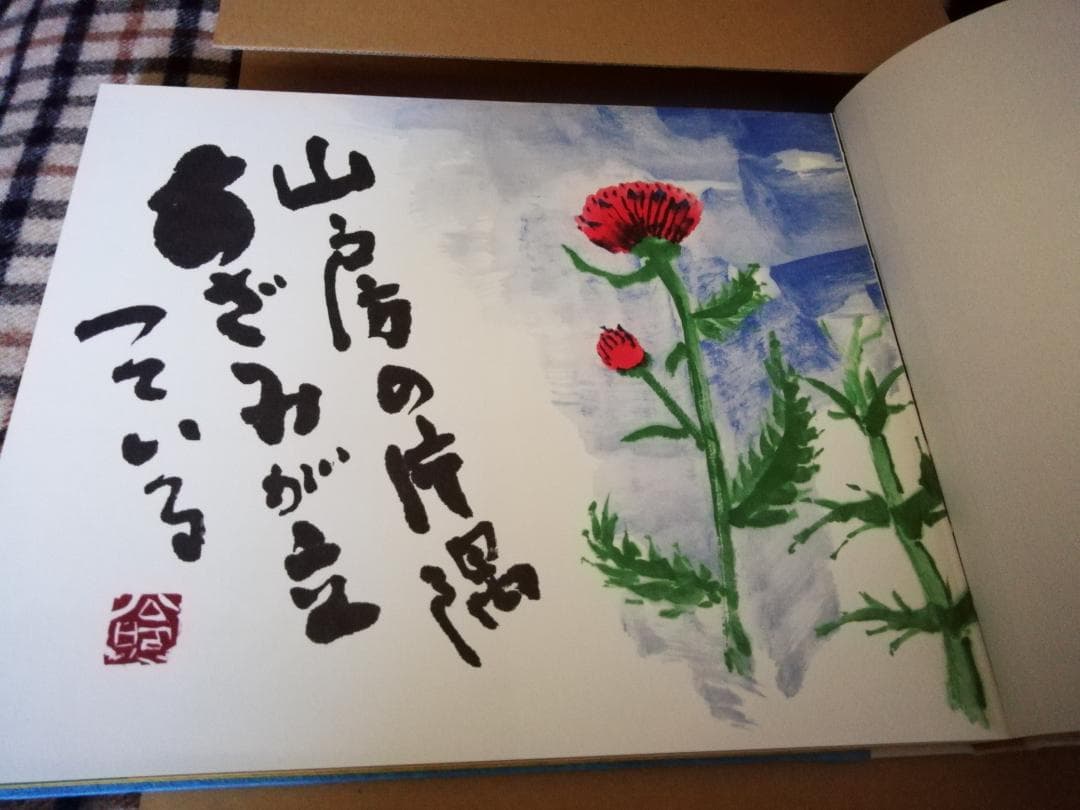 山房の片隅
あざみが立
っている